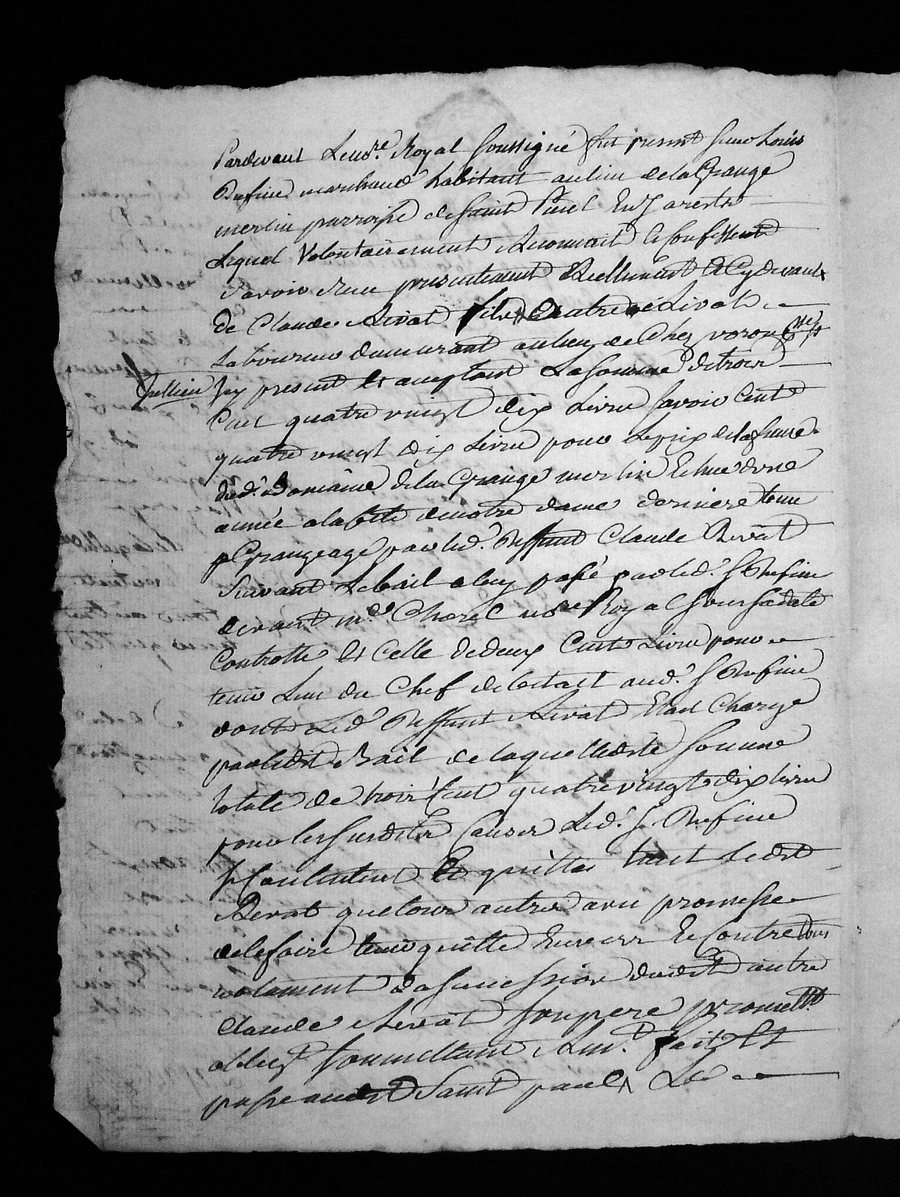 Pardevant Le no.re Royal soussigné fut present sieur Louis
Rufine marchand habitant au lieu de la Grange
merlin parroisse de Saint Paul En Jarests
Lequel Volontairement a Reconnut et Confessent
avoir Reçu presentement Reellement et Cydevant
de Claude Rivat fils a autre Rivat
Laboureur demeurant au lieu de Chez voron
Jullien Icy present et acceptant La somme de trois
Cent quatre vingt dix Livre savoir Cent
quatre vingt dix Livre pour Le prix de la ferme
dud. Domaine de la Grange merlin Echue d'une
année a la fete de notre dame derniere tenu
p Grangeage par led. deffunt Claude Rivat
suivant Le bail a luy passé par led. S. Rufine
devant m.e Charel no.re Royal sous sa date
Controllé Et Celle de deux Cents Livre pour
tenir Lieu du Chef de betail aud. S. Rufine
dont Led. deffunt Rivat Etait Chargé
par ledit Bail de laquelle ditte somme
totale de trois Cent quatre vingt dix livre
pour les susdittes Causes Led. S. Rufine
s Contentent Et quitte tant Ledit
Rivat que tous autres avec promesse
de le faire tenir quitte Envers Et Contre tous
notament la succession dudit autre
Claude Rivat son pere promett.
oblig. soumettant Renon. fait Et
passé audit Saint paul Le